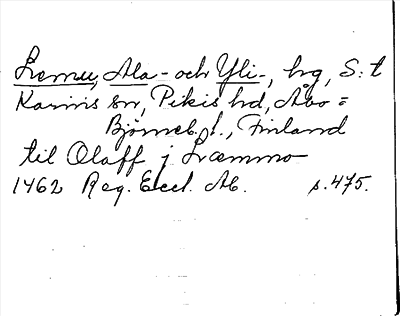 Lemu, Ala- och Yli-, hrg, S:t
Karins sn, Pikis hd, Åbo=
Björneb. l., Finland
til Olaff j Læmmo
1462 Reg. Eccl. Ab. s.475.